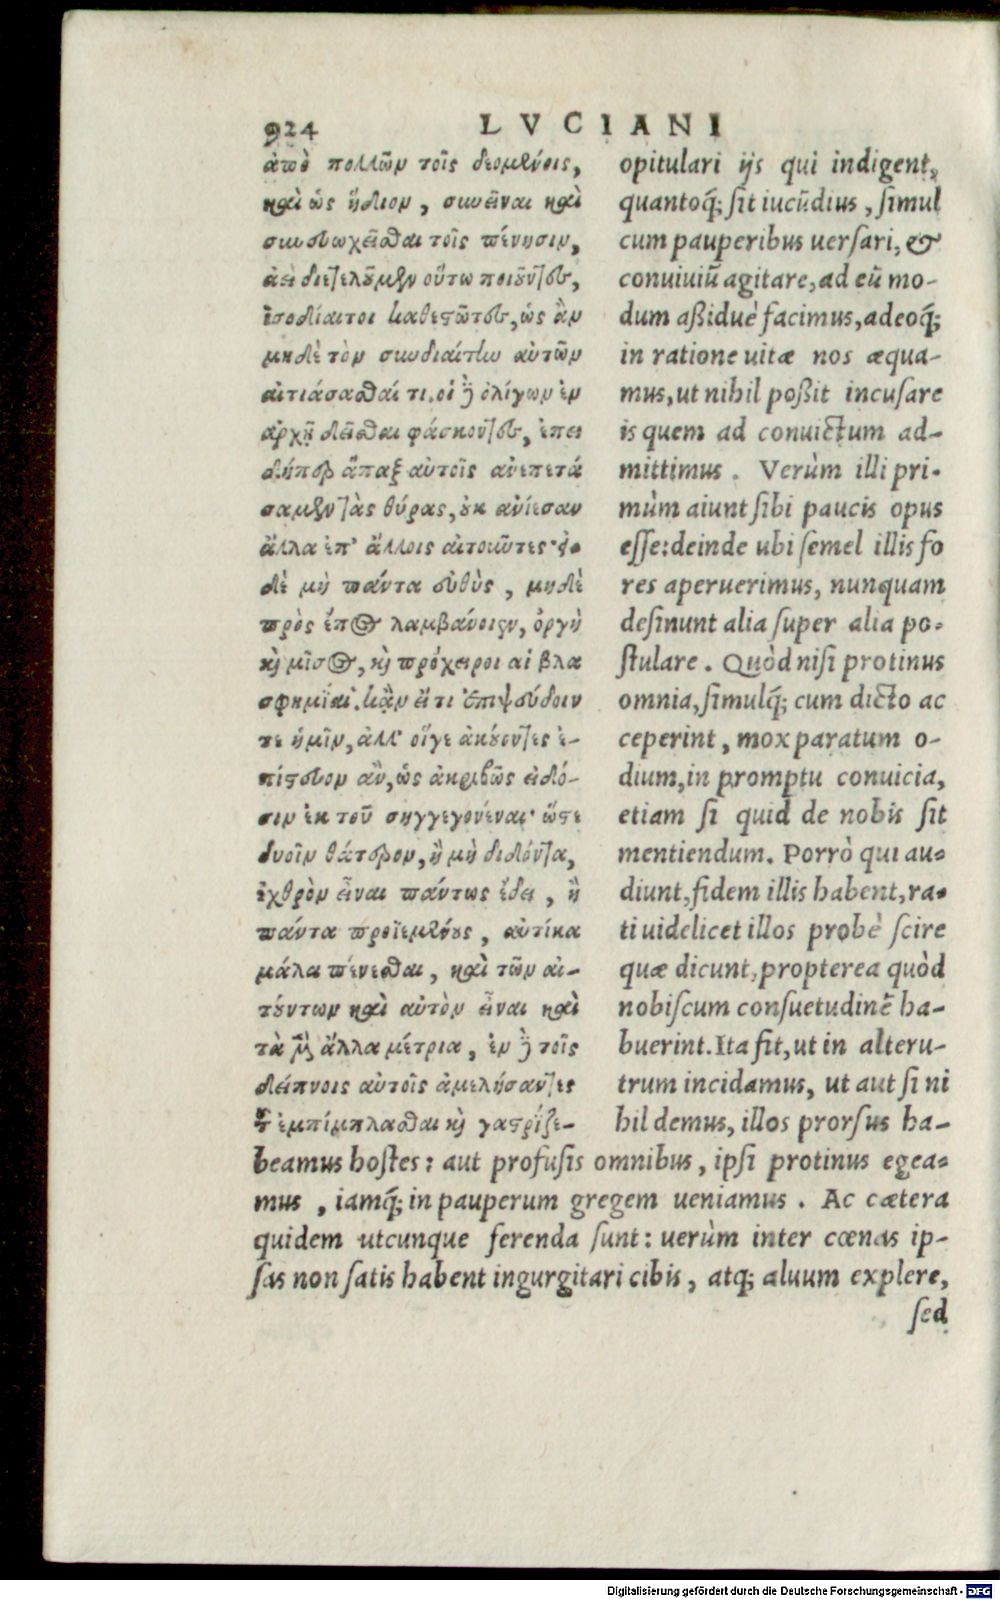 924 LVCIANI
ἀπὸ πολλῶν τοῖς δεομένοις,
καὶ ὡς ἥδιον, συνεῖναι καὶ
συνευωχεῖσθαι τοῖς πένησιν,
ἀεὶ διετελοῦμεν οὕτω ποιοῦντες,
ἰσοδίαιτοι καθεστῶτες, ὡς ἂν
μηδὲ τὸν συνδιαίτην αὐτῶν
αἰτιάσασθαί τι. οἱ δὲ ὀλίγων ἐν
ἀρχῇ δεῖσθαι φάσκοντες, ἐπει
δήπερ ἅπαξ αὐτοῖς ἀνεπετά
σαμεν τὰς θύρας, οὐκ ἀνίεσαν
ἄλλα ἐπ' ἄλλοις αἰτοῦντες· εἰ
δὲ μὴ πάντα εὐθὺς, μηδὲ
πρὸς ἔπος λαμβάνοιεν, ὀργὴ
καὶ μῖσος, καὶ πρόχειροι αἱ βλα
σφημίαι. κἂν εἴ τι ἐπιψεύδοιν
το ἡμῖν, ἀλλ' οἵγε ἀκούοντες ἐ-
πίστευον ἂν, ὡς ἀκριβῶς εἰδό-
σιν ἐκ τοῦ συγγεγονέναι· ὥστε
δυοῖν θάτερον, ἢ μὴ διδόντα,
ἐχθρὸν εἶναι πάντως ἔδει, ἢ
πάντα προϊεμένους, αὐτίκα
μάλα πένεσθαι, καὶ τῶν αἰ-
τούντων καὶ αὐτὸν εἶναι καὶ
τὰ μὲν ἄλλα μέτρια, ἐν δὲ τοῖς
δείπνοις αὐτοῖς ἀμελήσαντες
τοῦ ἐμπίμπλασθαι καὶ γαστρίζε-
opitulari ijs qui indigent,
quantoq́; sit iucūdius, simul
cum pauperibus uersari, &
conuiuiū agitare, ad eū mo-
dum aßiduè facimus, adeoq́;
in ratione uitæ nos æqua-
mus, ut nihil poßit incusare
is quem ad conuictum ad-
mittimus. Verùm illi pri-
mùm aiunt sibi paucis opus
esse: deinde ubi semel illis fo
res aperuerimus, nunquam
desinunt alia super alia po-
stulare. Quòd nisi protinus
omnia, simulq́; cum dicto ac
ceperint, mox paratum o-
dium, in promptu conuicia,
etiam si quid de nobis sit
mentiendum. Porrò qui au-
diunt, fidem illis habent, ra-
ti uidelicet illos probè scire
quæ dicunt, propterea quòd
nobiscum consuetudinē ha-
buerint. Ita fit, ut in alteru-
trum incidamus, ut aut si ni
hil demus, illos prorsus ha-
beamus hostes: aut profusis omnibus, ipsi protinus egea-
mus, iamq́; in pauperum gregem ueniamus. Ac cætera
quidem utcunque ferenda sunt: uerùm inter cœnas ip-
sas non satis habent ingurgitari cibis, atq; aluum explere,
sed
Digitalisierung gefördert durch die Deutsche Forschungsgemeinschaft - DFG